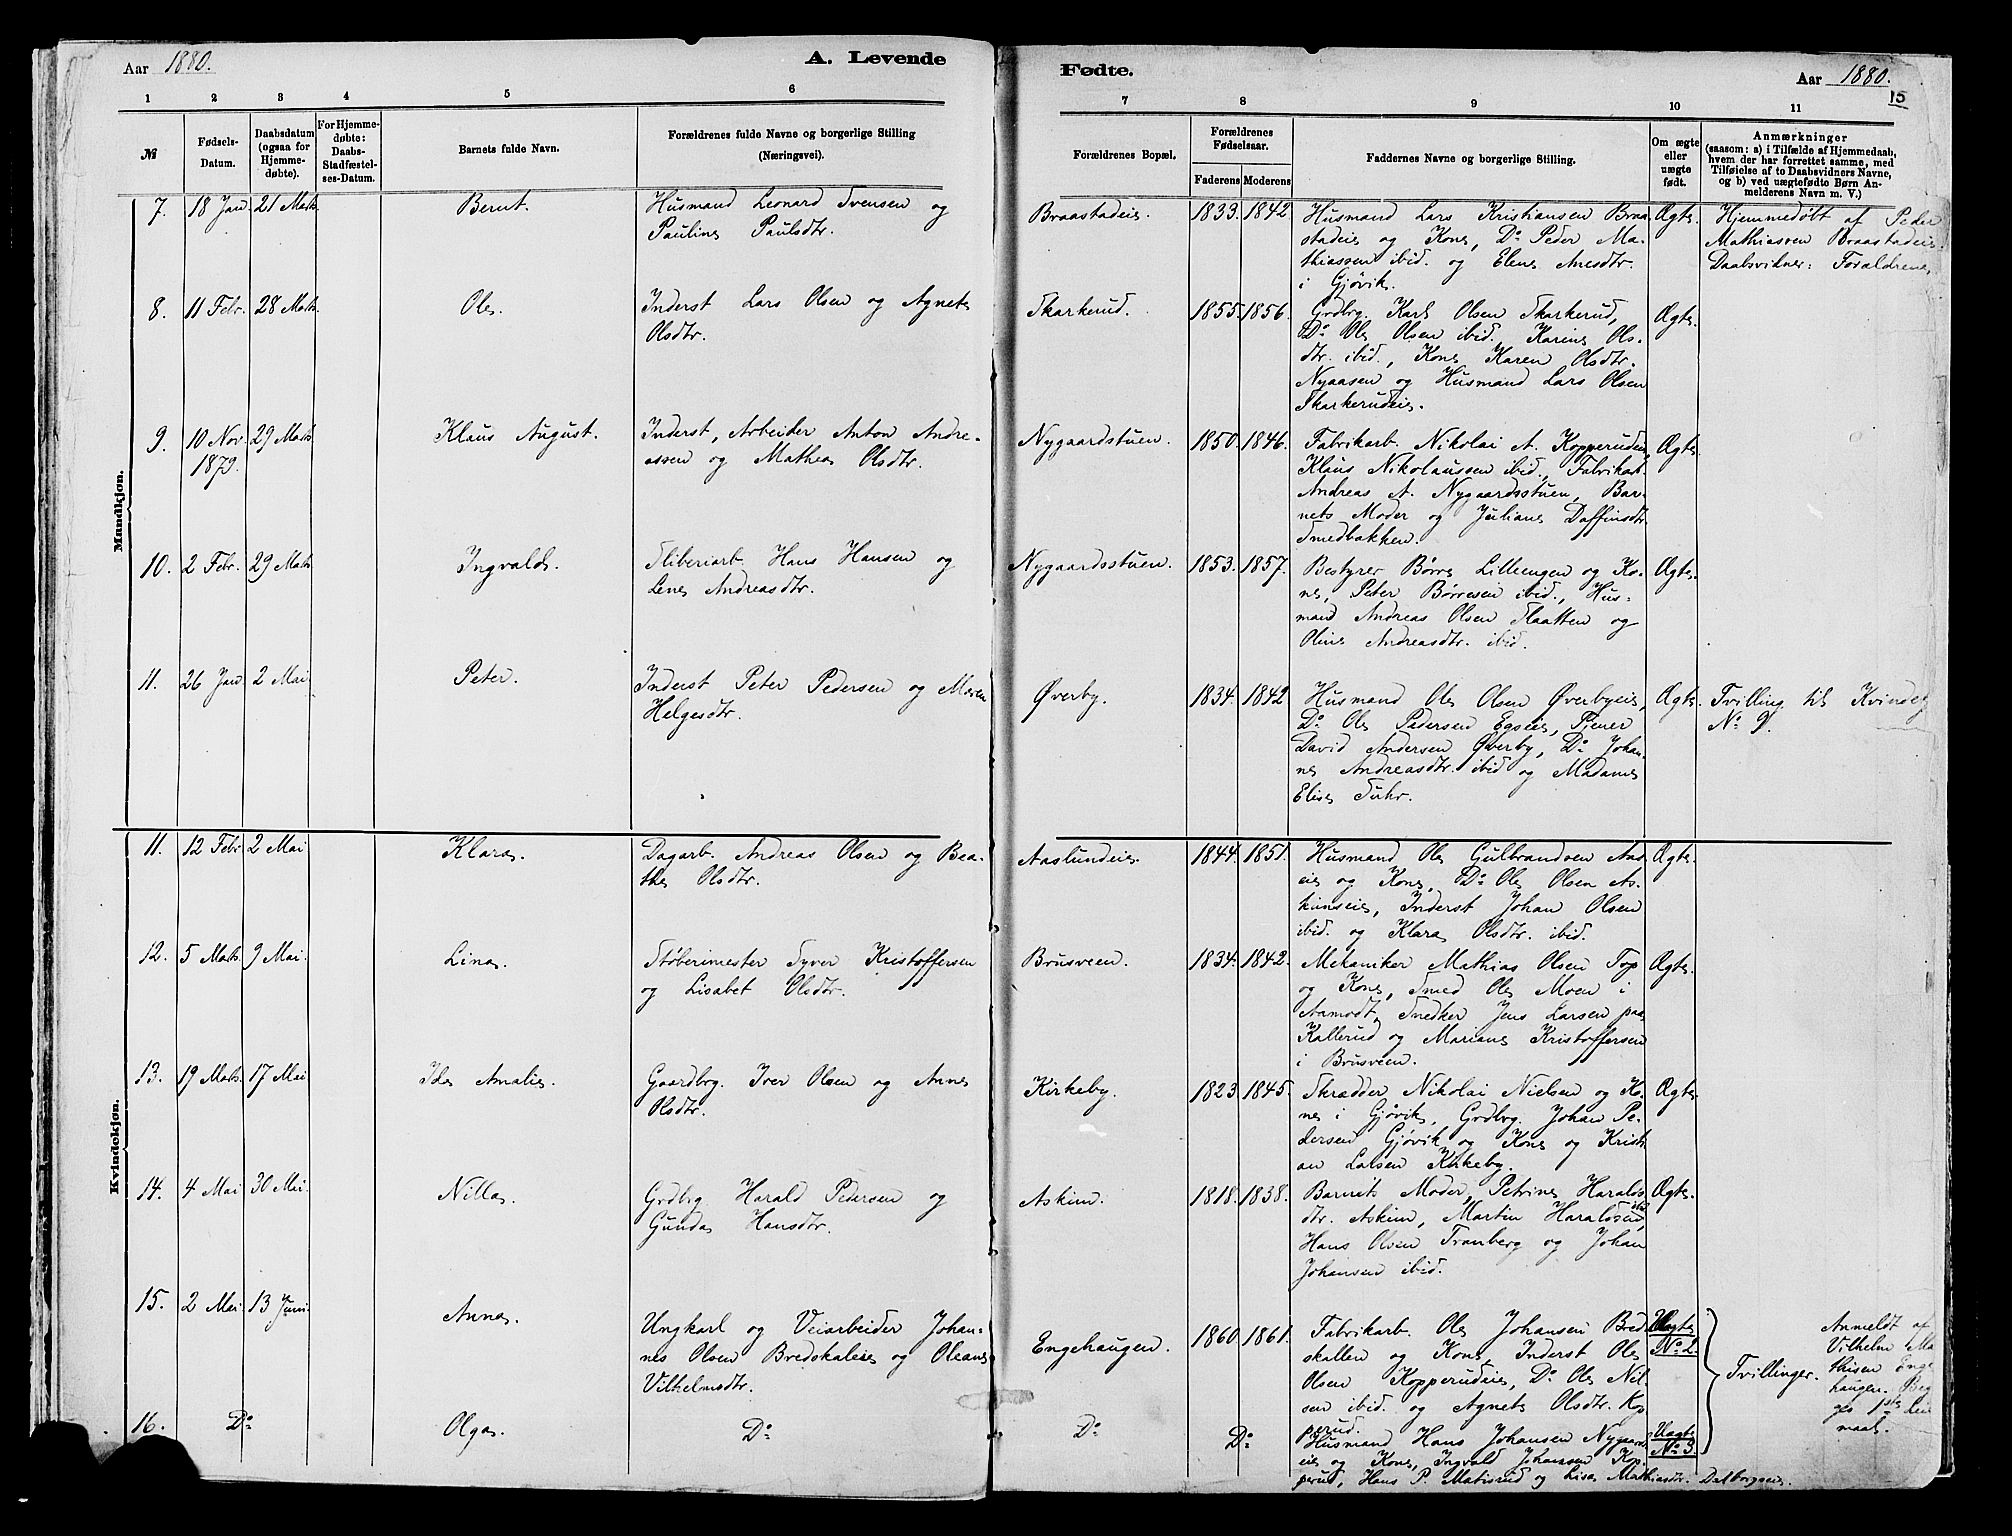 Aar 1880.
A. Levende
Fødte.
Aar 1880.
15
1 2 3 4 5 6 7 8 9 10 11
№
Fødsels-
Datum.
Daabsdatum
(ogsaa for
Hjemme-
døbte).
For Hjemme-
døbte:
Daabs-
Stadfæstel-
ses-Datum.
Barnets fulde Navn.
Forældrenes fulde Navne og borgerlige Stilling
(Næringsvei).
Forældrenes Bopæl.
Forældrenes
Fødselsaar.
Faderens Moderens
Faddernes Navne og borgerlige Stilling.
Om ægte
eller
uægte
født.
Anmærkninger
(saasom: a) i Tilfælde af Hjemmedaab,
hvem der har forrettet samme, med
Tilføielse af to Daabsvidners Navne,
og b) ved uægtefødte Børn An-
melderens Navn m. V.)
Mandkjøn.
7. 18 Jan. 21 Marts. Bernt.
Husmand Leonard Svensen og
Pauline Paulsdtr.
Braastadeie. 1833. 1842
Husmand Lars Kristiansen Braa-
stadeie og Kone, Do Peder Ma-
thiassen ibid. og Elene Anesdtr.
i Gjøvik.
Ægte.
Hjemmedøbt af Peder
Mathiassen Braastadeie.
Daabsvidner: Forældrene.
8. 11 Febr. 28 Marts. Ole.
Inderst Lars Olsen og Agnete
Olsdtr.
Skarkerud. 1855. 1856.
Grdbrg. Karl Olsen Skarkerud,
Do Ole Olsen ibid. Karine Ols-
dtr. ibid., Kone Karen Olsdtr.
Nyaasen og Husmand Lars Olsen
Skarkerudeie.
Ægte.
9. 10 Nov. 29 Marts. Klaus August.
1879.
Inderst, Arbeider Anton Andre-
assen og Mathea Olsdtr.
Nygaardstuen. 1850. 1846.
Fabrikarb. Nikolai A. Kopperudeie,
Klaus Nikolaussen ibid., Fabrikarb.
Andreas A. Nygaardsstuen, Bar-
nets Moder og Juliane Daffinsdtr.
Smedbakken.
Ægte.
10. 2 Febr. 29 Marts Ingvald.
Sliberiarb. Hans Hansen og
Lene Andreasdtr.
Nygaardsstuen. 1853. 1857.
Bestyrer Børre Lillengen og Ko-
ne, Peter Børresen ibid., Hus-
mand Andreas Olsen Slaatten og
Oline Andreasdtr. ibid.
Ægte.
11. 26 Jan. 2 Mai. Peter.
Inderst Peter Pedersen og Maren
Helgesdtr.
Øverby. 1834. 1842
Husmand Ole Olsen Øverbyeie,
Do Ole Pedersen Egseie, Tjener
David Andersen Øverby, Do Johan-
ne Andreasdtr. ibid og Madame
Elise Suhr.
Ægte.
Tvilling til Kvindekj.
No 9.
Kvindekjøn.
11. 12 Febr 2 Mai Klara.
Dagarb. Andreas Olsen og Bea-
the Olsdtr.
Aaslundeie. 1844. 1851.
Husmand Ole Gulbrandsen Aas-
eie og Kone, Do Ole Olsen As-
kimseie, Inderst Johan Olsen
ibid. og Klara Olsdtr. ibid.
Ægte.
12. 5 Marts. 9 Mai. Lina.
Støberimester Syver Kristoffersen
og Lisabet Olsdtr.
Brusveen. 1834. 1842.
Mekaniker Mathias Olsen Top
og Kone, Smed Ole Moen i
Aamodt, Snedker Jens Larsen paa
Kallerud og Mariane Kristoffersen
i Brusveen.
Ægte.
13. 19 Marts. 17 Mai Ida Amalie.
Gaardbrg. Iver Olsen og Anne
Olsdtr.
Kirkeby. 1823. 1845.
Skrædder Nikolai Nielsen og Ko-
ne i Gjøvik, Grdbrg. Johan Pe-
dersen Gjøvik og Kone og Kristi-
an Larsen Kirkeby.
Ægte.
14. 4 Mai 30 Mai. Nilla.
Grdbrg Harald Pedersen og
Gunda Hansdtr.
Askim. 1818. 1838.
Barnets Moder, Petrine Haralds-
dtr. Askim, Martin Haraldsen ibid
Hans Olsen Tranberg og Johan
Johansen ibid.
Ægte.
15. 2 Mai. 13 Juni. Anne.
Ungkarl og Veiarbeider Johan-
nes Olsen Bredskaleie og Oleane
Vilhelmsdtr.
Engehaugen. 1860. 1861.
Fabrikarb. Ole Johansen Bred-
skallen og Kone, Inderst Ole
Olsen Kopperudeie, Do Ole Nil-
sen ibid. og Agnete Olsdtr. Kop-
perud.
Uægte
No 2.
Tvillinger.
Anmeldt af
Vilhelm Ma-
thisen Enge-
haugen. Beg-
ges 1ste Leir-
maal.
16. Do Olga. Do
Do Do
Husmand Hans Johansen Nygaards-
eie og Kone, Ingvald Johansen Kop-
perud, Hans P. Matisrud og Lisa Mathiasdtr. Dalborgseie.
Uægte
No 3.